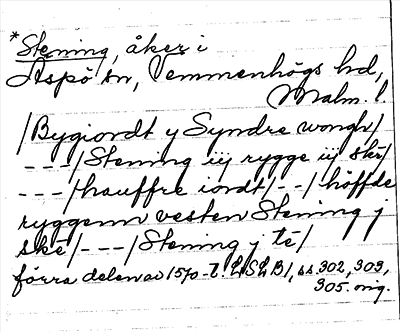 *Stening, åker i
Äspö sn, Vemmenhögs hd,
Malm. l.
/Bygiordt y Syndre wongh/
---/Stening iij rygge iij skè/
---/hauffre iordt/--/höffde
ryggenn vesten Stening j
skè/---/Stening j tè/
förra delen av 1570-t. LSLB1, ss 302, 303,
305. orig.